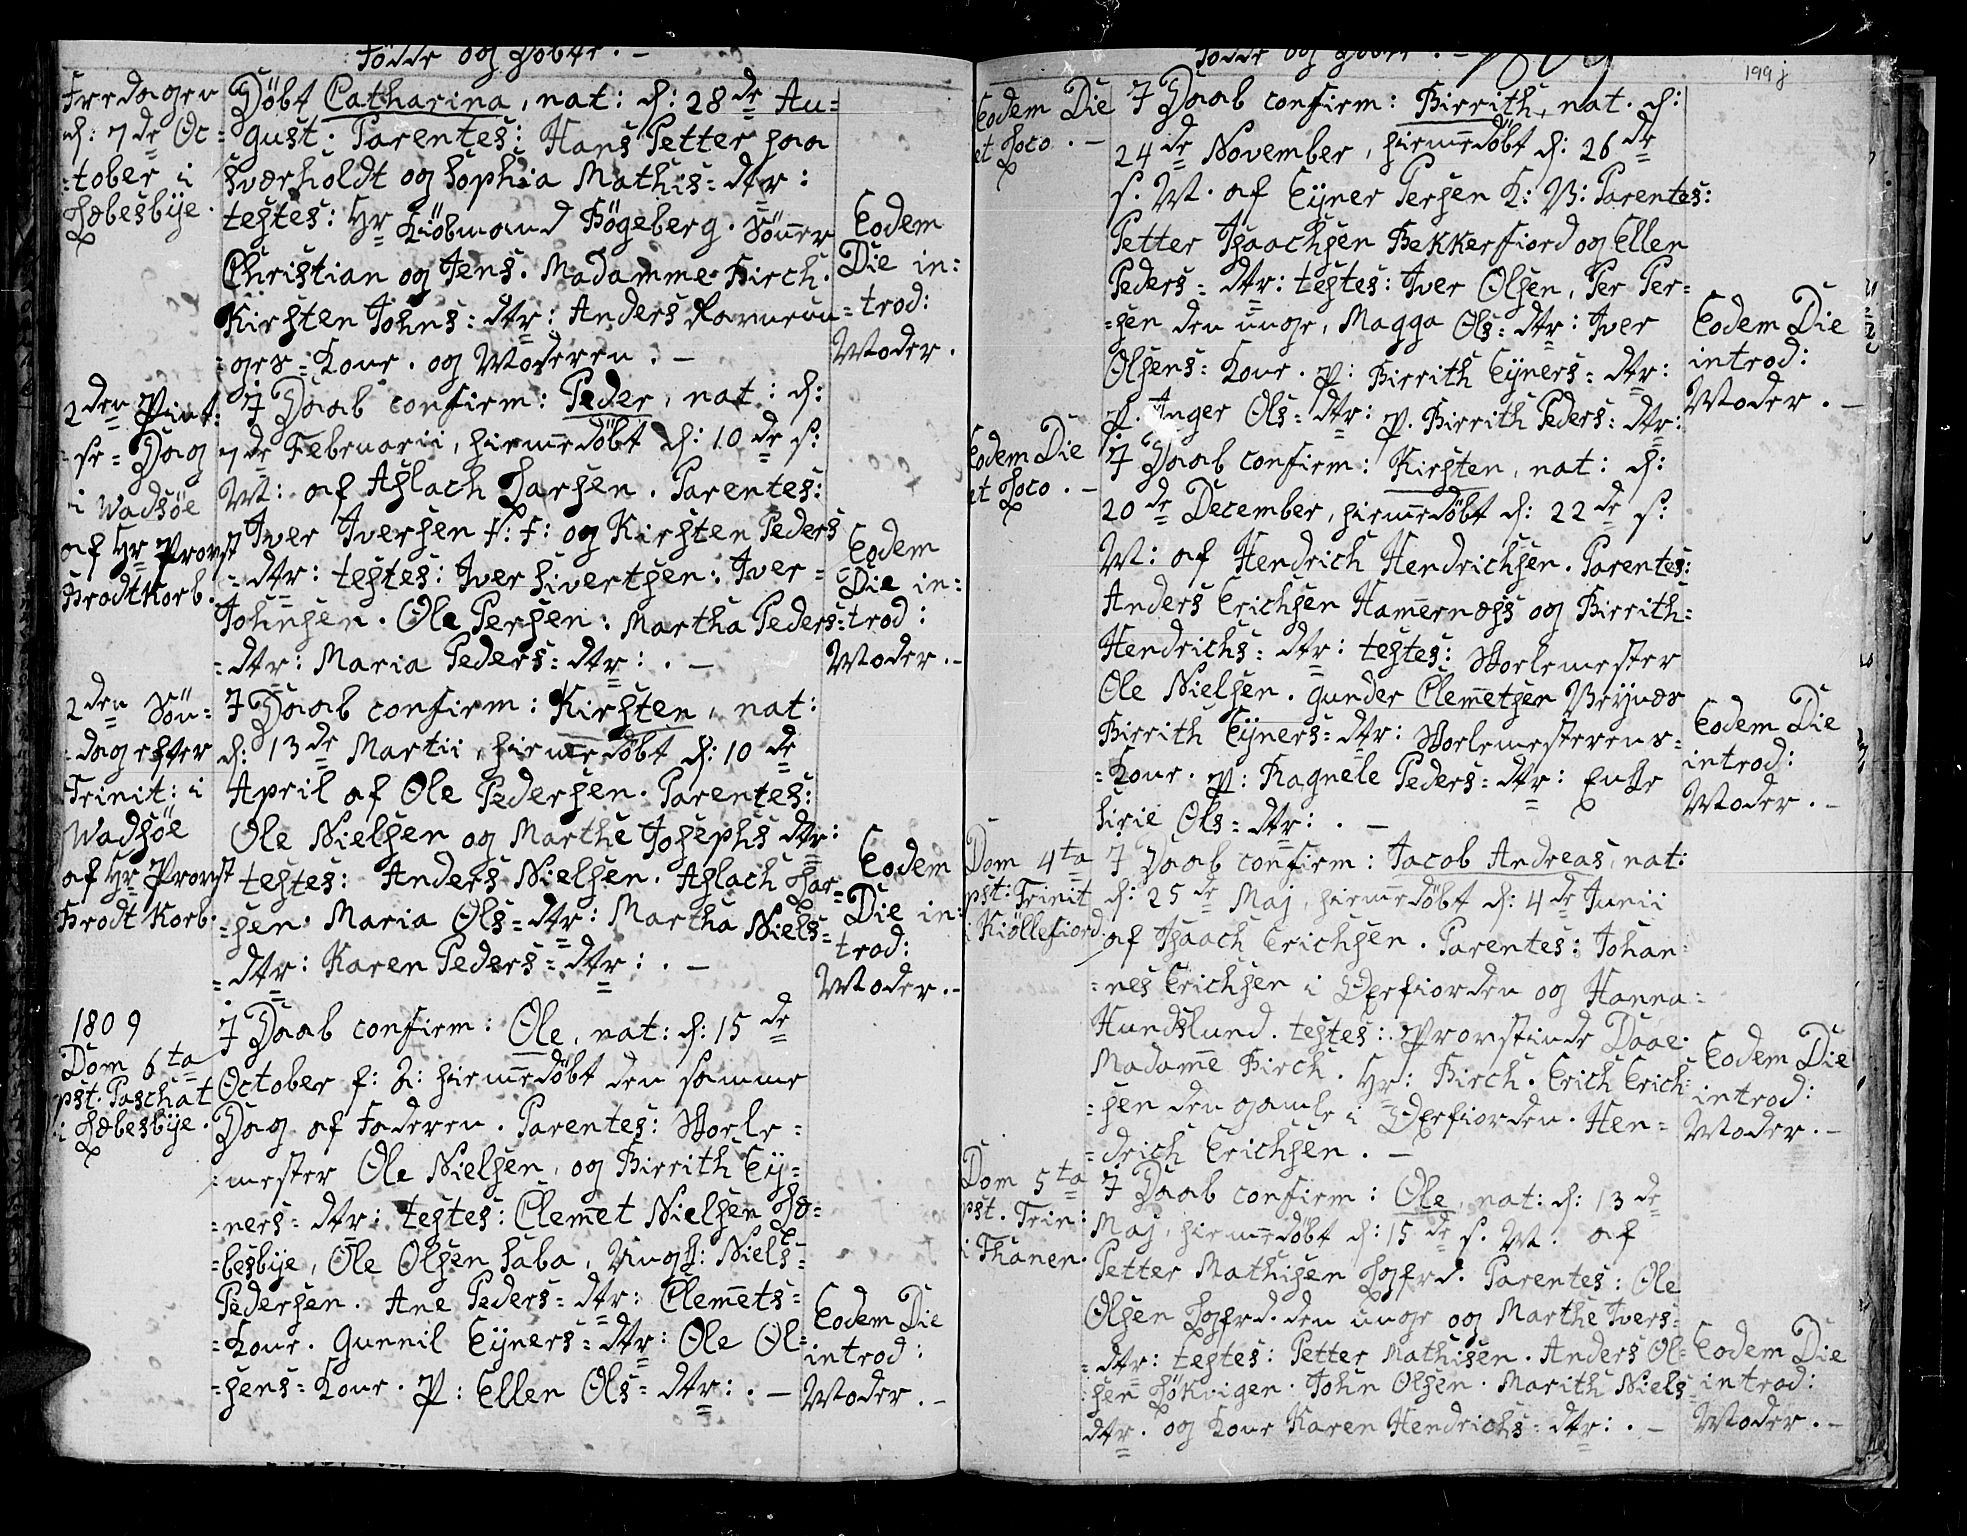 Födde og Döbte. -
Fredagen
d: 7de Oc=
=tober i
Læbesbÿe.
Döbt Catharina, nat: d: 28de Au=
gust. Parentes: Hans Petter paa
Sværholdt og Sophia Mathis=dtr:
testes: Hr Kiöbmand Bögeberg. Sönner
Christian og Jens. Madamme Birch.
Kirsten Johns=dtr: Anders
=ges=Kone. og Moderen. -
Eodem
Die in:
=trod:
Moder.
2den Pint:
=se=Dag
i Wadsöe
af Hr Provst
BrodtKorb.
I Daab confirm: Peder, nat: d:
7de Februarii, hiemedöbt d: 10de s:
M: af Aslach Larsen. Parentes:
Iver Iversen f: f: og Kirsten Peders
=dtr: testes: Iver Sivertsen: Iver=
Johnsen. Ole Persen: Martha Peders=
=dtr: Maria Peders=dtr: . -
Eodem
Die in:
trod:
Moder. -
2den Sön=
=dag efter
Trinit: i
Wadsöe
af Hr Provst
Brodt Korb.
I Daab confirm: Kirsten, nat:
d: 13de Martii, hiemedöbt d: 10de
April af Ole Pedersen. Parentes:
Ole Nielsen og Marthe Josephs dtr:
testes: Anders Nielsen. Aslach Lar=
=sen. Maria Ols=dtr: Martha Niels=
=dtr: Karen Peders=dtr: . -
Eodem
Die in:
trod:
Moder. -
1809
Dom 6ta
pst. Paschat
i Læbesbÿe.
I Daab confirm: Ole, nat: d: 15de
October f: A: hiemedöbt den samme
Dag af Faderen. Parentes: Skole=
=mester Ole Nielsen, og Birrith Eÿ=
=ners=dtr: testes: Clemet Nielsen Læ=
=besbÿe, Ole Olsen Saba, Ungk: Niels=
Pedersen. Ane Peders=dtr: Clemets=
=Kone. Gunnil Eÿners=dtr: Ole Ol=
=sens=Kone. P: Ellen Ols=dtr: . -
Eodem Die
introd:
Moder. -
Födde og Döbte. -
199j
Eodem Die
et Loco. -
I Daab confirm: Birrith, nat. d:
24de November, hiemedöbt d: 26de
s. M. af Eÿner Persen K: B: Parentes:
Petter Isaachsen Bekkerfiord og Ellen
Peders=dtr: testes: Iver Olsen, Per Per=
=sen den unge, Magga Ols=dtr: Iver
Olsens=Kone. P: Birrith Eÿners=dtr:
P. Inger Ols=dtr: P. Birrith Peders=dtr:
Eodem Die
introd:
Moder. -
Eodem Die
et Loco. -
I Daab confirm: Kirsten, nat: d:
20de December, hiemedöbt d: 22de s:
M: af Hendrich Hendrichsen. Parentes:
Anders Erichsen Hamernæss og Birrith=
Hendrichs=dtr: testes: Skolemester
Ole Nielsen. Gunder Clemetsen Veÿnæs
Birrith Eÿners=dtr: Skolemesterens=
=Kone. P: Ragnele Peders=dtr: Enke
Sirie Ols=dtr: . -
Eodem Die
introd:
Moder. -
Dom 4ta
pst: Trinit
i Kiöllefiord.
I Daab confirm: Jacob Andreas, nat:
d: 25de Maj, hiemedöbt d: 4de Junii
af Isaach Erichsen. Parentes: Johan=
=nes Erichsen i Oxefiorden og Hanna=
Hundslund. testes: Provstinde Daae.
Madame Birch. Hr: Birch. Erich Erich=
=sen den gamle i Oxefiorden. Hen=
=drich Erichsen. -
Eodem Die
introd:
Moder. -
Dom 5ta
pst. Trin:
i Thanen.
I Daab confirm: Ole, nat: d: 13de
Maj, hiemedöbt d: 15de s. M. af
Petter Mathisen Lgfrd. Parentes: Ole
Olsen Lgfrd. den unge og Marthe Ivers=
=dtr: testes: Petter Mathisen. Anders Ol=
=sen Lökvigen. John Olsen. Marith Niels
dtr. og Kone Karen Hendrichs=dtr: . -
Eodem Die
introd:
Moder. -